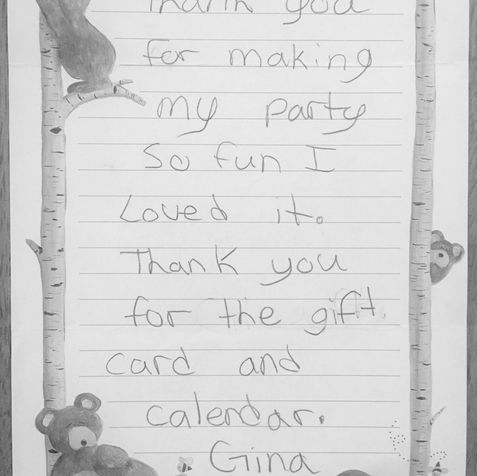 Thank you
for making
my party
so fun I
Loved it.
Thank you
for the gift
card and
calendar.
Gina